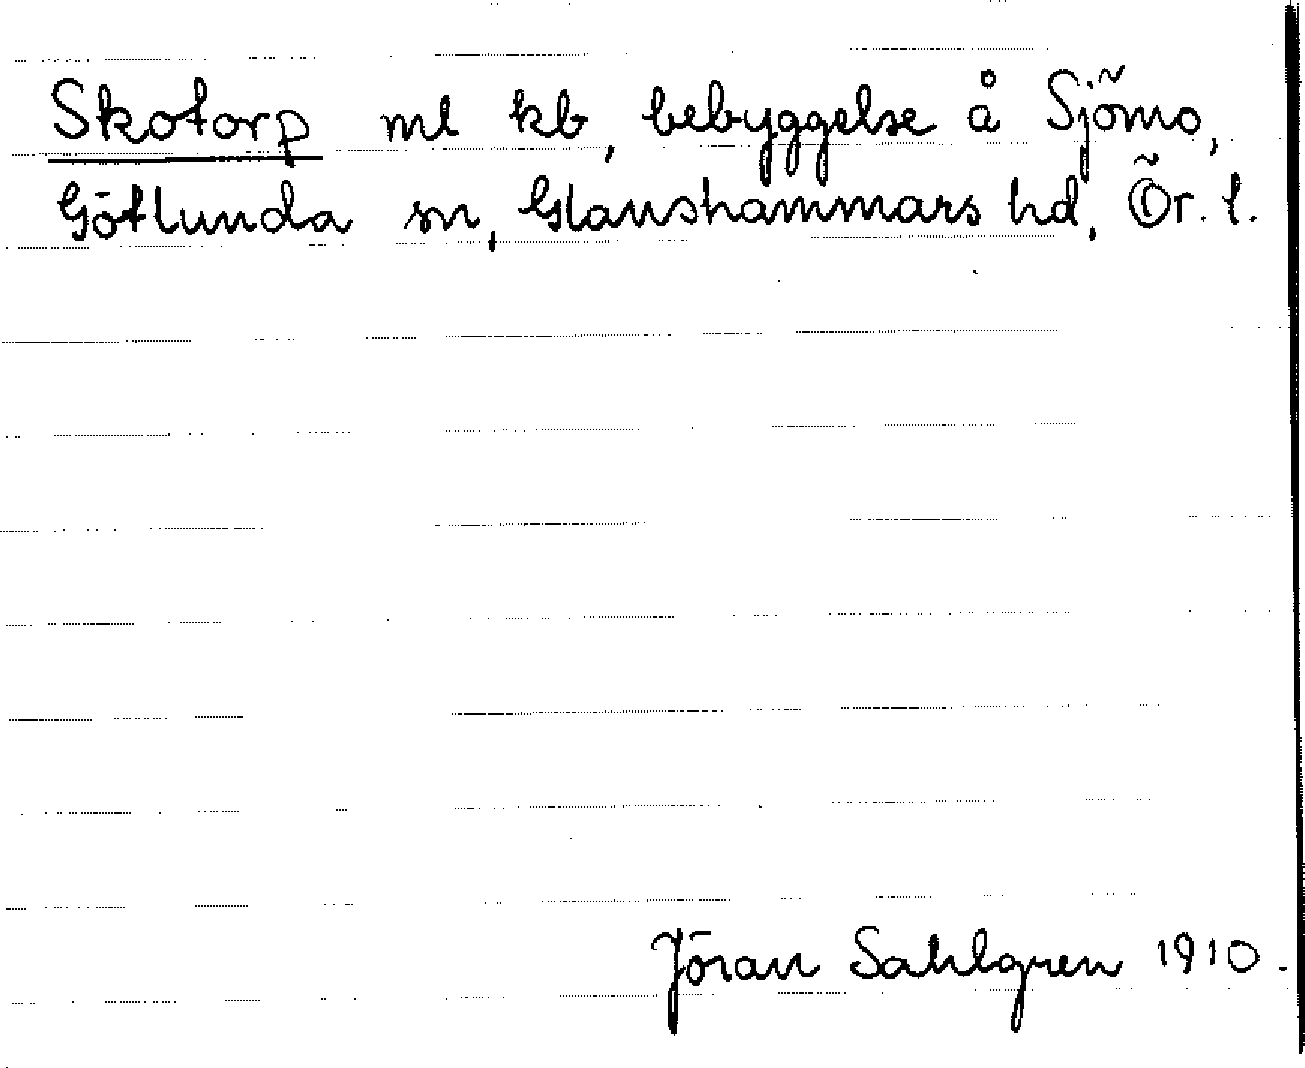 Skotorp ml kb, bebyggelse å Sjömo,
Götlunda sn, Glanshammars hd, Ör. l.
Jöran Sahlgren 1910.